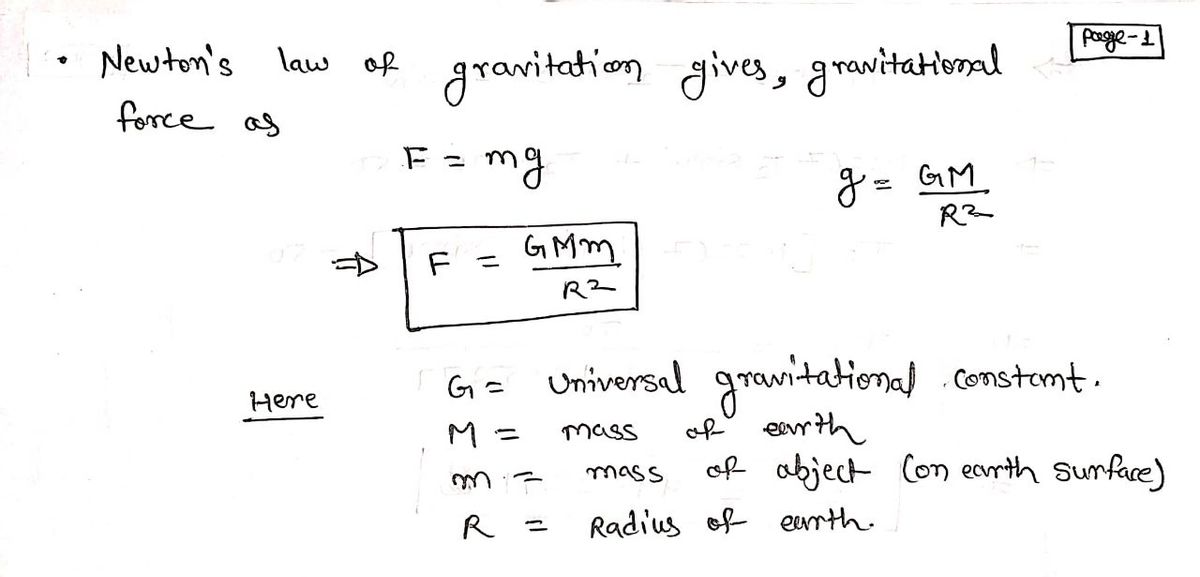 page-1
• Newton's law of gravitation gives, gravitational
force as
F = mg
g = GM/R²
⇒ F = GMm/R²
Here G = Universal gravitational constant.
M = mass of earth
m = mass of abject (on earth surface)
R = Radius of earth.